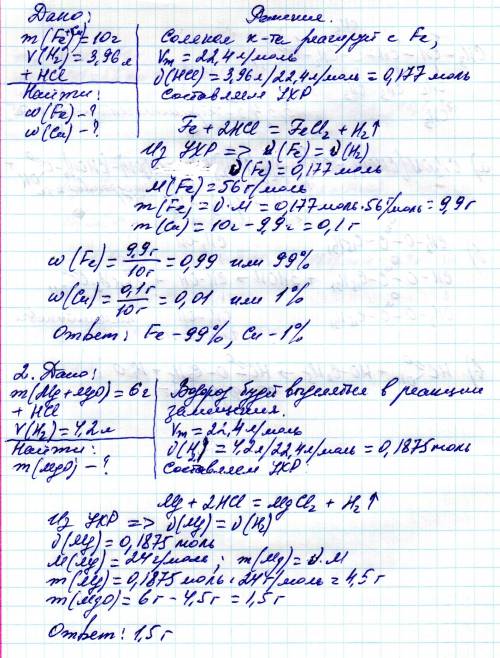 Дано:
Решение.
m(Fe+Cu)=10г
V(H₂)=3,96л
+ HCl
Найти:
ω(Fe)-?
ω(Cu)-?
Соляная к-та реагирует с Fe,
Vm=22,4л/моль
ν(HCl)=3,96л/22,4л/моль=0,177моль
Составляем УХР
Fe+2HCl=FeCl₂+H₂↑
Из УХР => ν(Fe)=ν(H₂)
ν(Fe)=0,177моль
M(Fe)=56г/моль
m(Fe)=ν·M=0,177моль·56г/моль=9,9г
m(Cu)=10г-9,9г=0,1г
ω(Fe)=9,9г/10г=0,99 или 99%
ω(Cu)=0,1г/10г=0,01 или 1%
Ответ: Fe-99%, Cu-1%
2. Дано:
m(Mg+MgO)=6г
+ HCl
V(H₂)=4,2л
Найти:
m(MgO)-?
Водород будет выделяться в реакции
замещения.
Vm=22,4л/моль
ν(H₂)=4,2л/22,4л/моль=0,1875моль
Составляем УХР
Mg+2HCl=MgCl₂+H₂↑
Из УХР => ν(Mg)=ν(H₂)
ν(Mg)=0,1875моль
M(Mg)=24г/моль; m(Mg)=ν·M
m(Mg)=0,1875моль·24г/моль=4,5г
m(MgO)=6г-4,5г=1,5г
Ответ: 1,5г